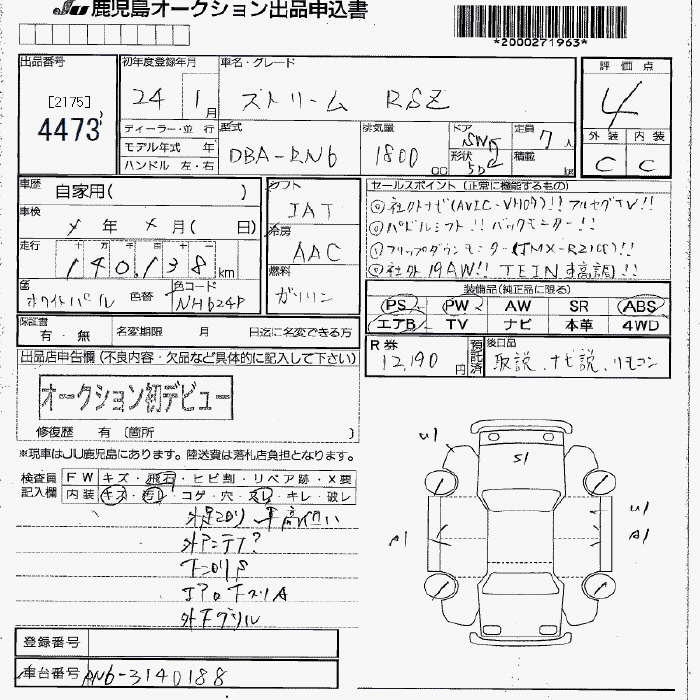 JU 鹿児島オークション出品申込書
*2000271963*
出品番号
[2175]
4473
初年度登録年月
24 1月
車名・グレード
ストリーム RSZ
評価点
4
外装 内装
C C
ディーラー・並行
モデル年式 年
ハンドル 左・右
型式
DBA-RN6
排気量
1800 CC
ドア 5W
形状 5D
定員 7人
積載 kg
車歴 自家用( )
車検 年 月( 日)
走行 十万千百十一
140,138 km
色 ホワイトパール
色替
色コード NH624P
シフト IAT
冷房 AAC
燃料 ガソリン
セールスポイント(正常に機能するもの)
◎社外ナビ(AVIC-VH09)!! フルセグTV!!
◎パドルシフト!! バックモニター!!
◎フリップダウンモニター
◎社外19AW!! TEIN車高調!!
装備品(純正品に限る)
PS PW AW SR ABS
エアB TV ナビ 本革 4WD
保証書 有・無
名変期限 月 日迄に名変できる方
R券 12,190円
預託済
後日品 取説、ナビ説、リモコン
出品店申告欄(不良内容・欠品など具体的に記入して下さい)
オークション初デビュー
修復歴 有〔箇所 〕
※現車はJU鹿児島にあります。陸送費は落札店負担となります。
検査員記入欄
FW キズ・飛石・ヒビ割・リペア跡・X要
内装 キズ・汚レ・コゲ・穴・スレ・キレ・破レ
外アンテナ?
下コスリS
外F グリル
U1
S1
A1
U1
A1
登録番号
車台番号 RN6-3140188